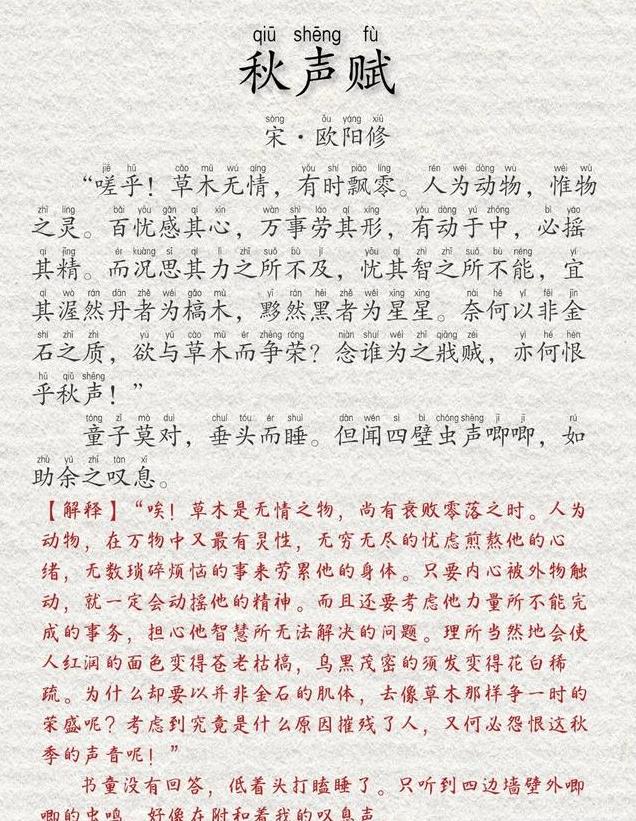 qiū shēng fù
秋声赋
sòng ōu yáng xiū
宋·欧阳修
jiē hū cǎo mù wú qíng yǒu shí piāo líng rén wéi dòng wù wéi wù
“嗟乎！草木无情，有时飘零。人为动物，惟物
zhī líng bǎi yōu gǎn qí xīn wàn shì láo qí xíng yǒu dòng yú zhōng bì yáo
之灵。百忧感其心，万事劳其形，有动于中，必摇
qí jīng ér kuàng sī qí lì zhī suǒ bù jí yōu qí zhì zhī suǒ bù néng yí
其精。而况思其力之所不及，忧其智之所不能，宜
qí wò rán dān zhě wéi gǎo mù yī rán hēi zhě wéi xīng xīng nài hé yǐ fēi jīn
其渥然丹者为槁木，黟然黑者为星星。奈何以非金
shí zhī zhì yù yǔ cǎo mù ér zhēng róng niàn shuí wéi zhī qiāng zéi yì hé hèn
石之质，欲与草木而争荣？念谁为之戕贼，亦何恨
hū qiū shēng
乎秋声！”
tóng zǐ mò duì chuí tóu ér shuì dàn wén sì bì chóng shēng jī jī rú
童子莫对，垂头而睡。但闻四壁虫声唧唧，如
zhù yú zhī tàn xī
助余之叹息。
【解释】“唉！草木是无情之物，尚有衰败零落之时。人为
动物，在万物中又最有灵性，无穷无尽的忧虑煎熬他的心
绪，无数琐碎烦恼的事来劳累他的身体。只要内心被外物触
动，就一定会动摇他的精神。而且还要考虑他力量所不能完
成的事务，担心他智慧所无法解决的问题。理所当然地会使
人红润的面色变得苍老枯槁，乌黑茂密的须发变得花白稀
疏。为什么却要以并非金石的肌体，去像草木那样争一时的
荣盛呢？考虑到究竟是什么原因摧残了人，又何必怨恨这秋
季的声音呢！”
书童没有回答，低着头打瞌睡了。只听到四边墙壁外唧
唧的虫鸣，好像在附和着我的叹息声